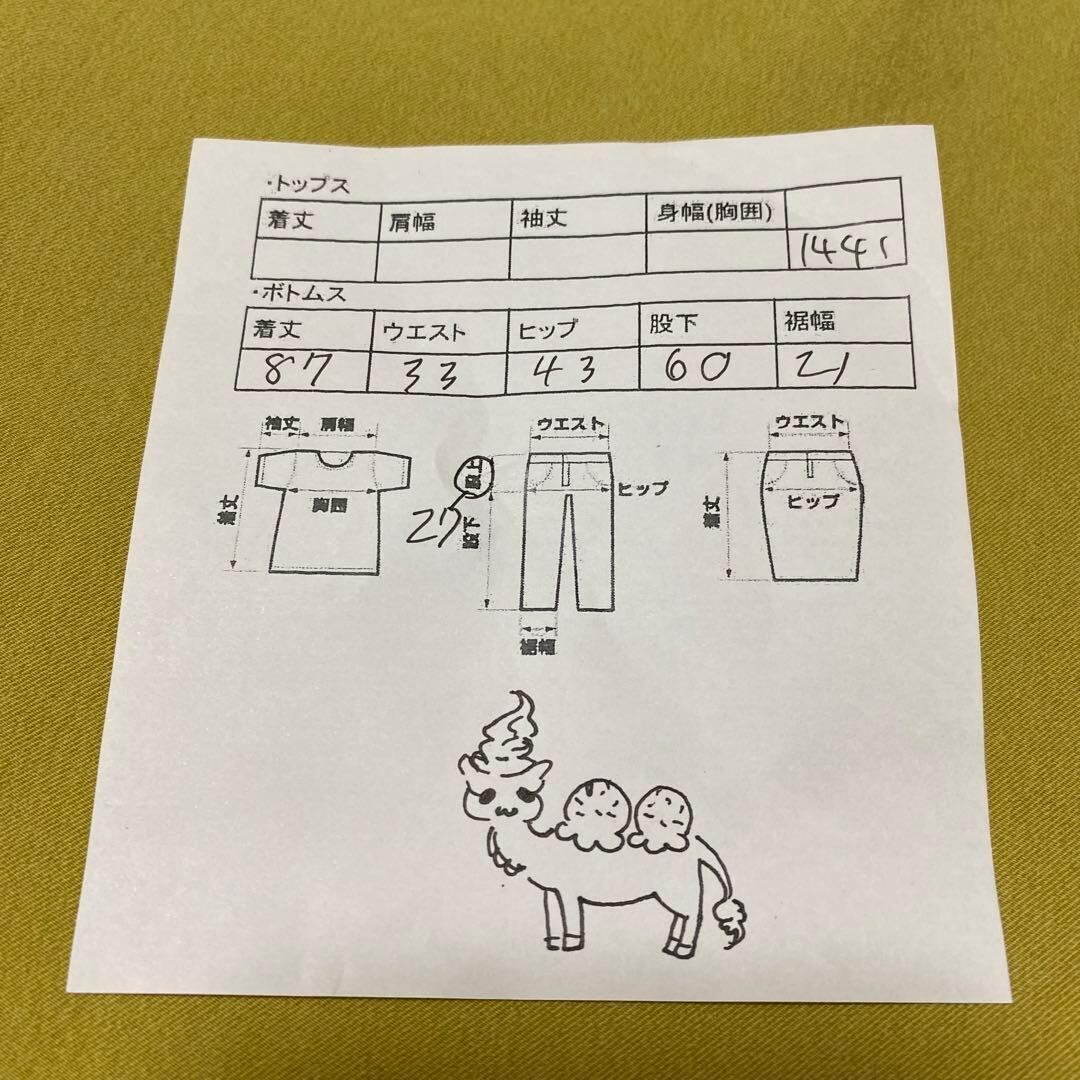 ・トップス
着丈 肩幅 袖丈 身幅(胸囲)
1441
・ボトムス
着丈 ウエスト ヒップ 股下 裾幅
87 33 43 60 21
袖丈 肩幅
着丈
胸囲
ウエスト
股上
ヒップ
27
股下
裾幅
ウエスト
着丈
ヒップ